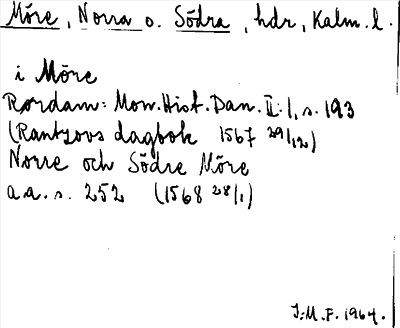 Möre, Norra o. Södra, hdr, Kalm. l.
i Möre
Rørdam: Mon. Hist. Dan. II:1, s. 193
(Rantzovs dagbok 1567 29/12)
Norre och Södre Möre
a.a. s. 252 (1568 28/1)
J.M.F. 1964.